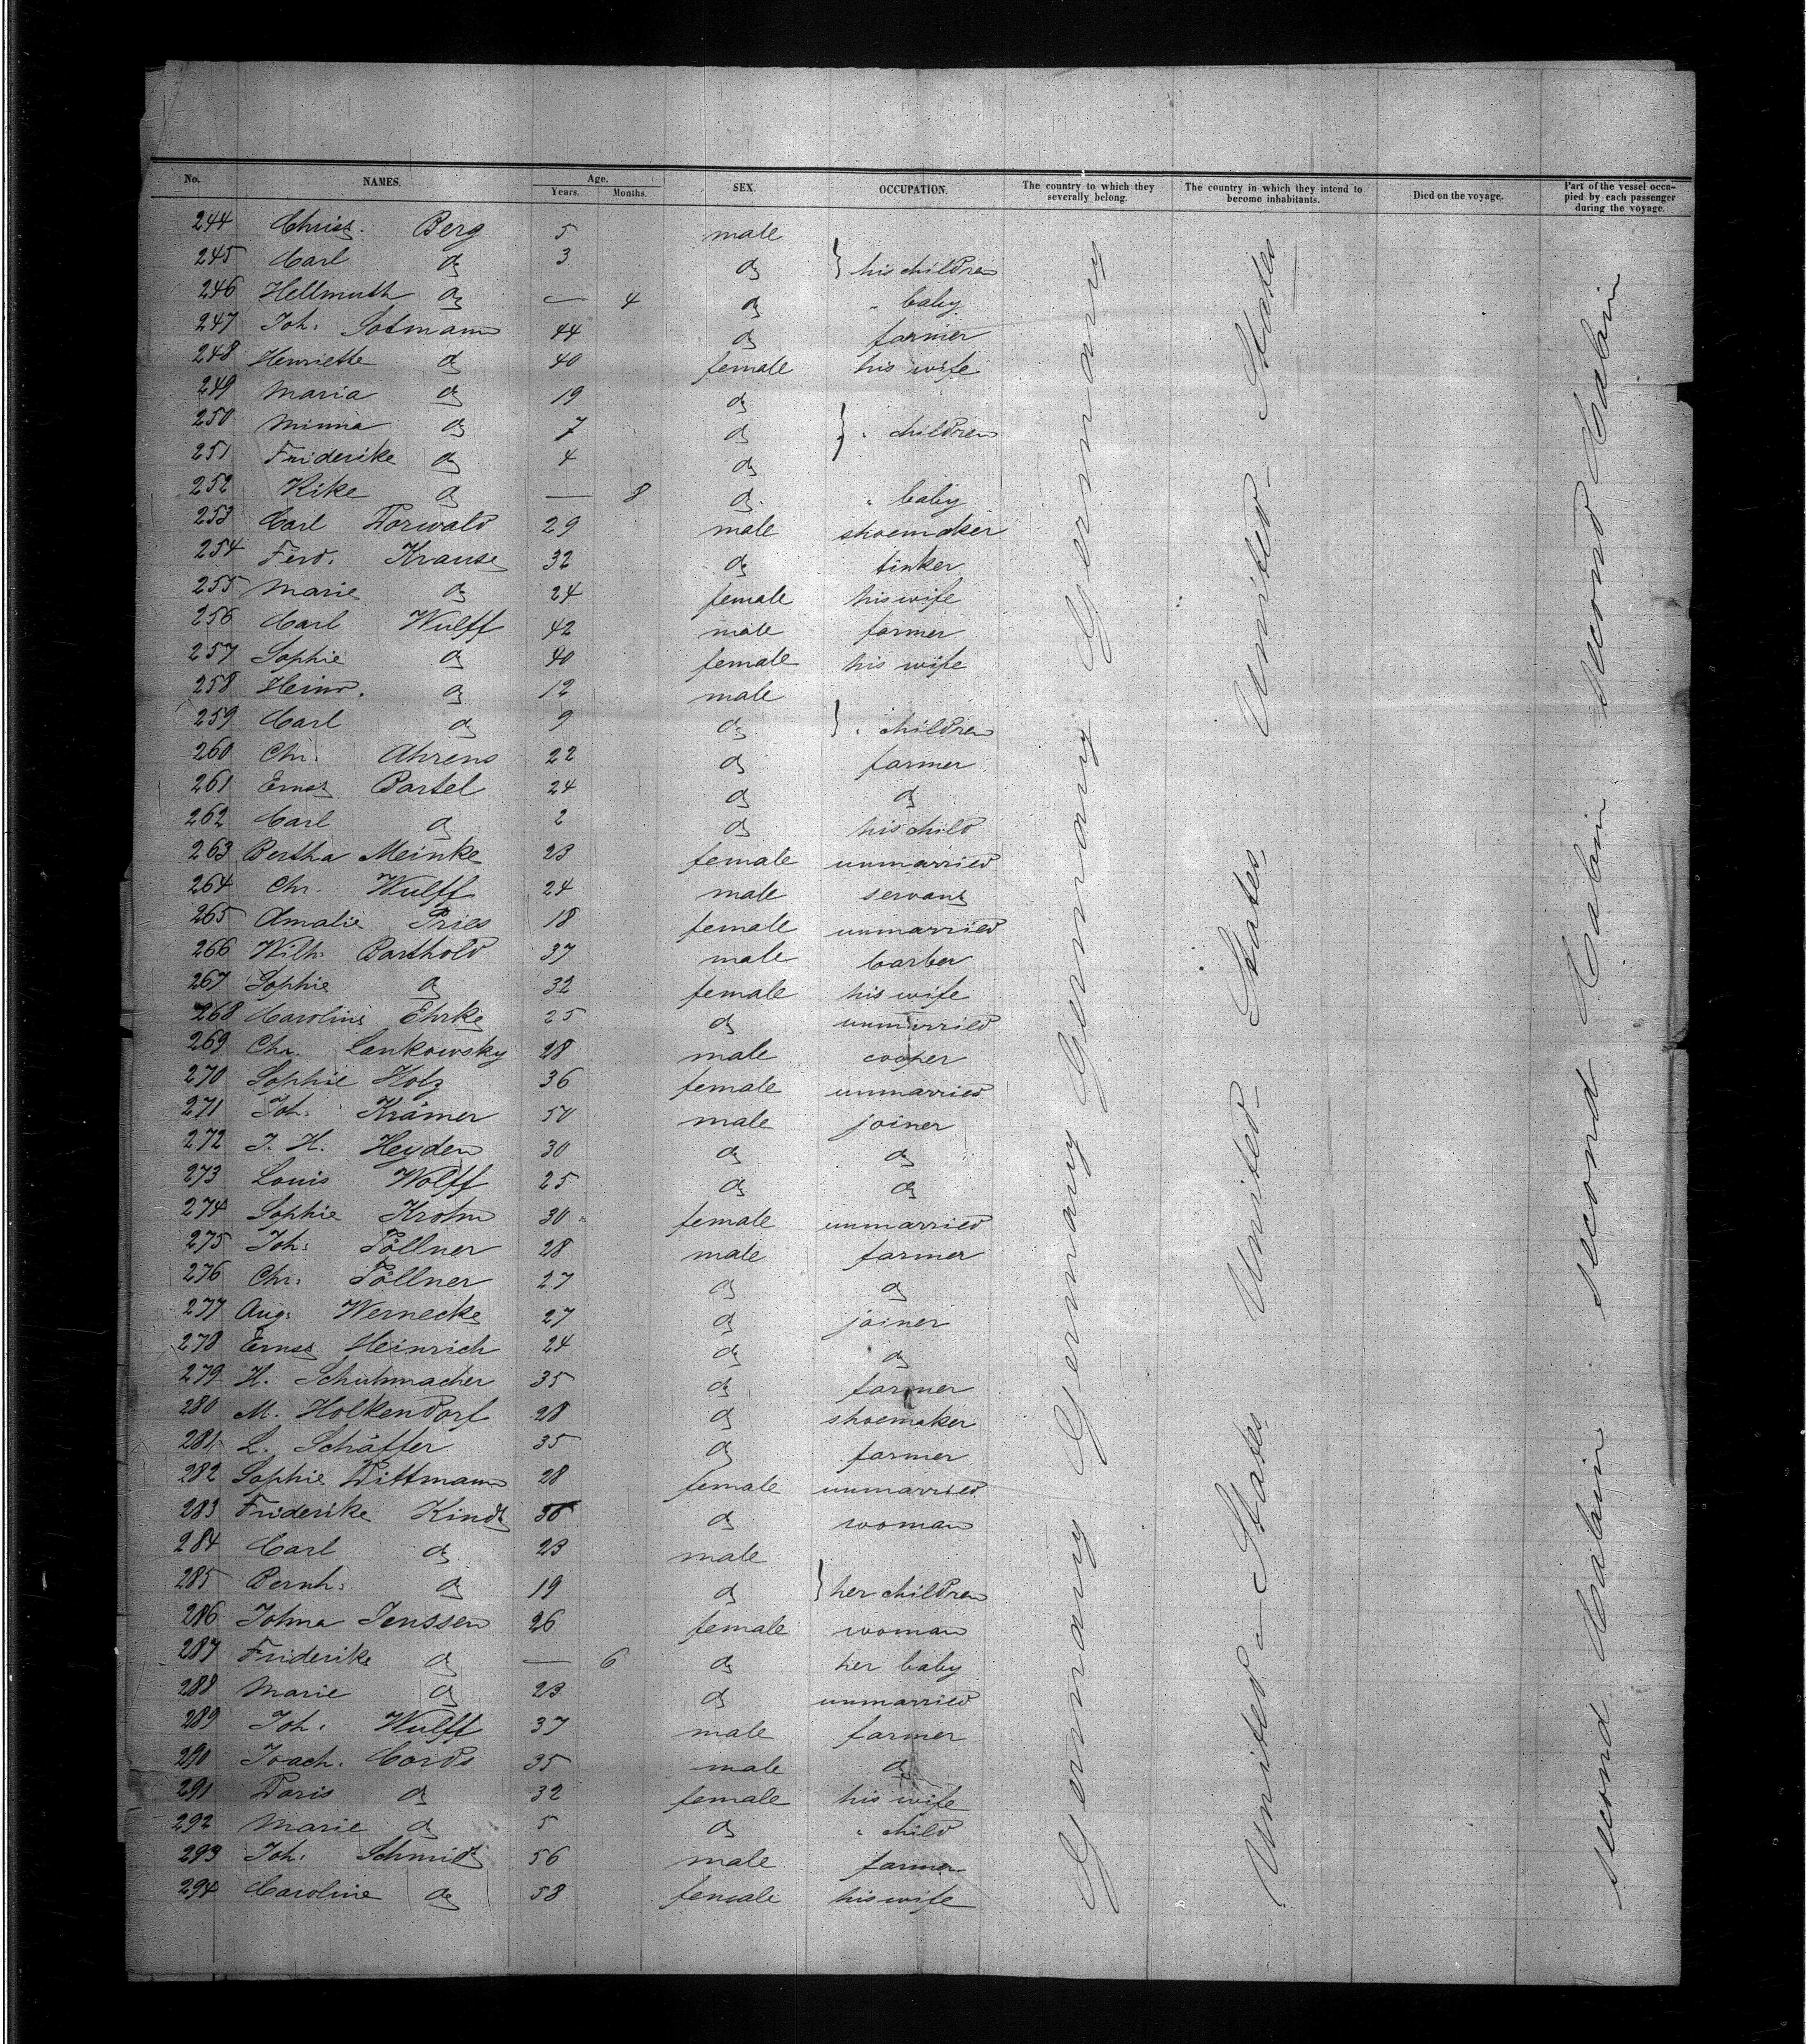 No. NAMES. Age. Years. Months. SEX. OCCUPATION. The country to which they severally belong. The country in which they intend to become inhabitants. Died on the voyage. Part of the vessel occupied by each passenger during the voyage.
244 Christ. Berg 5 male
245 Carl do 3 do } his children
246 Hellmuth do — 4 do " baby
247 Joh. Sotmann 44 do farmer
248 Henriette do 40 female his wife
249 Maria do 19 do
250 Minna do 7 do } " children
251 Friderike do 4 do
252 Rike do — 8 do " baby
253 Carl Dorwald 29 male shoemaker
254 Ferd. Krause 32 do tinker
255 Marie do 24 female his wife
256 Carl Wulff 42 male farmer
257 Sophie do 40 female his wife
258 Heinr. do 12 male
259 Carl do 9 do } " children
260 Chr. Ahrens 22 do farmer
261 Ernst Bartel 24 do do
262 Carl do 2 do his child
263 Bertha Meinke 23 female unmarried
264 Chr. Wulff 24 male servant
265 Amalie Pries 18 female unmarried
266 Wilh. Barthold 37 male barber
267 Sophie do 32 female his wife
268 Caroline Ehrke 25 do unmarried
269 Chr. Lankowsky 28 male cooper
270 Sophie Holz 36 female unmarried
271 Joh. Krämer 50 male joiner
272 J. H. Heyden 30 do do
273 Louis Wolff 25 do do
274 Sophie Krohn 30 female unmarried
275 Joh. Töllner 28 male farmer
276 Chr. Töllner 27 do do
277 Aug. Wernecke 27 do joiner
278 Ernst Heinrich 24 do do
279 H. Schuhmacher 35 do farmer
280 M. Holkendorf 28 do shoemaker
281 L. Schäffer 35 do farmer
282 Sophie Dittmann 28 female unmarried
283 Friderike Kindt do woman
284 Carl do 23 male
285 Bernh. do 19 do } her children
286 Johna Jenssen 26 female woman
287 Friderike do — 6 do her baby
288 Marie do 23 do unmarried
289 Joh. Wulff 37 male farmer
290 Joach. Cords 35 male do
291 Doris do 32 female his wife
292 Marie do 5 do " child
293 Joh. Schmidt 56 male farmer
294 Caroline do 58 female his wife
Germany Germany Germany Germany
United States United States United States
second Cabin second Cabin second Cabin